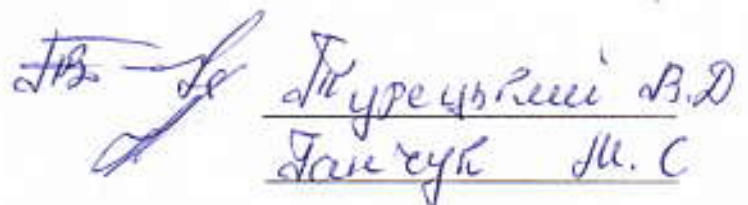 Турецький В.Д
Ганчук М. С